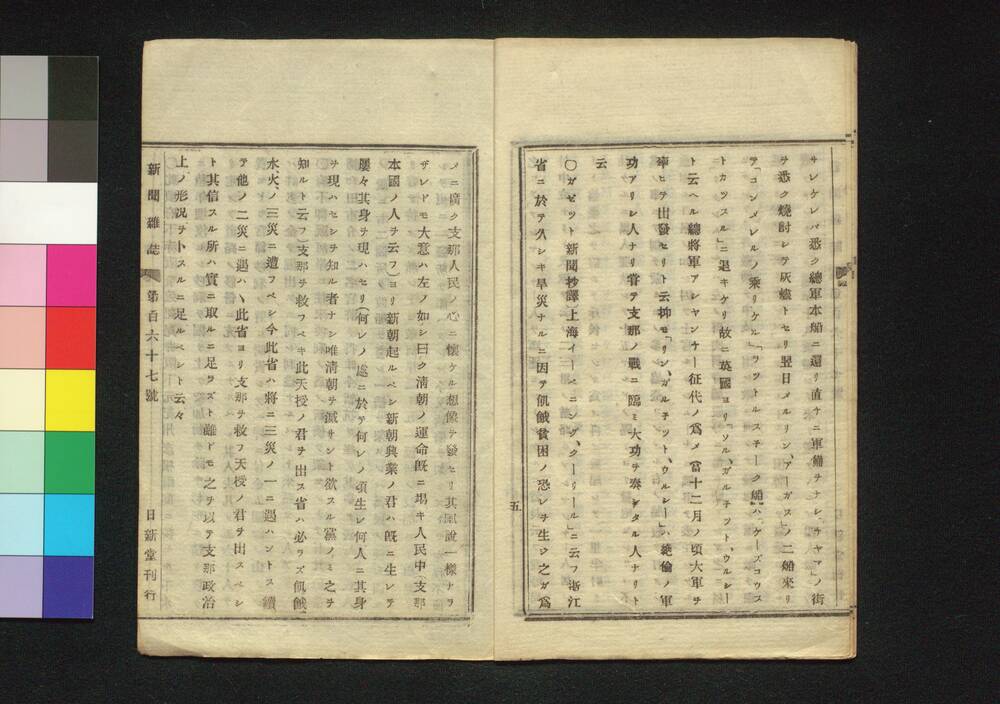 サレケレバ悉ク總軍本船ニ還リ直ケニ軍備ヲナシ、チヤマ」ノ街
ヲ悉ク燒討シテ灰燼トセリ翌日メルリン、アーガス」ノ二船來リ
テ「コンメレルノ乘リケル」「ラツトルスチーク船ハケーズコウス
トカツスル」ニ退キケリ故ニ英國ヨリ「ソル、ガルチツト、ウルシー
ト云ヘル總將軍アシヤンチー征代ノ爲メ(當十二月ノ頃大軍ヲ
率ヒテ出發セリト云抑モ「リン、ガルチツト、ウルシー」ハ絶倫ノ軍
功アリシ人ナリ甞テ支那ノ戰ニ臨ミ大功ヲ奏シタル人ナリト
云
〇ガゼツト新聞抄譯上海イーベニング、クーリール」ニ云フ浙江
省ニ於テ久シキ旱災ナルニ因テ飢餓貧困ノ恐レヲ生シ之ガ爲
五
メニ廣ク支那人民ノ心ニ懷ケル想像ヲ發セリ其風說一樣ナラ
ザレドモ大意ハ左ノ如シ曰ク清朝ノ運命既ニ塲キ人民中(支那
本國ノ人ヲ云フ)ヨリ新朝起ルベシ新朝興業ノ君ハ既ニ生レテ
屢々其身ヲ現ハセリ(何レノ處ニ於テ何レノ頃生レ何人ニ其身
ヲ現ハセシヲ知ル者ナシ唯清朝ヲ滅サント欲スル黨ノミ之ヲ
知ルト云フ)支那ヲ救フベキ此天授ノ君ヲ出ス省ハ必ラズ飢餓
水火ノ三災ニ遭フベシ今此省ハ將ニ三災ノ一ニ遇ハントス續
テ他ノ二災ニ遇ハヽ此省ヨリ支那ヲ救フ天授ノ君ヲ出スベシ
ト其信スル所ハ實ニ取ルニ足ラズト雖ドモ之ヲ以テ支那政治
上ノ形況ヲトスルニ足ルベシト云々
新聞雜誌 第百六十七號 日新堂刊行